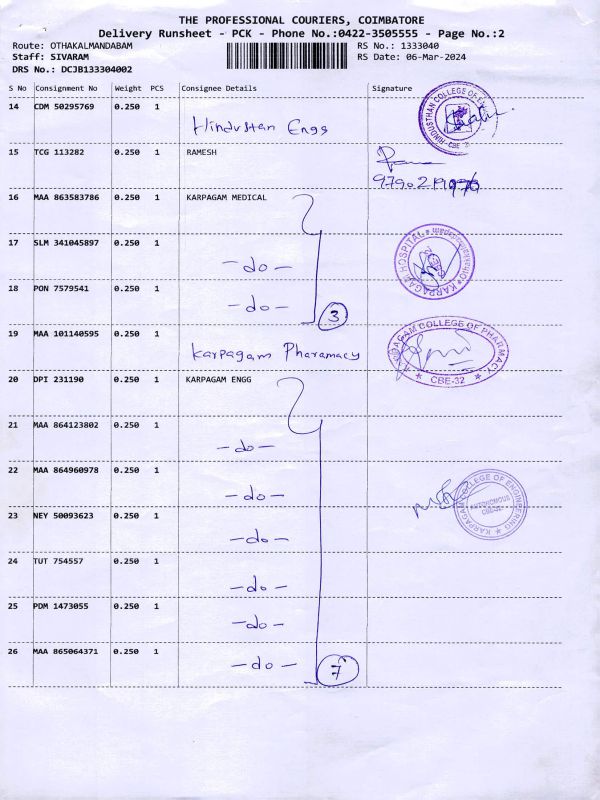 THE PROFESSIONAL COURIERS, COIMBATORE
Delivery Runsheet - PCK - Phone No.:0422-3505555 - Page No.:2
Route: OTHAKALMANDABAM RS No.: 1333040
Staff: SIVARAM RS Date: 06-Mar-2024
DRS No.: DCJB133304002
S No Consignment No Weight PCS Consignee Details Signature
14 CDM 50295769 0.250 1 Hindustan Engg
15 TCG 113282 0.250 1 RAMESH
16 MAA 863583786 0.250 1 KARPAGAM MEDICAL
17 SLM 341045897 0.250 1 -do-
KARPAGAM HOSPITAL
18 PON 7579541 0.250 1 -do- 3
19 MAA 101140595 0.250 1 Karpagam Pharamacy
KARPAGAM COLLEGE OF PHARMACY
CBE-32
20 DPI 231190 0.250 1 KARPAGAM ENGG
21 MAA 864123802 0.250 1 -do-
22 MAA 864960978 0.250 1 -do-
KARPAGAM COLLEGE OF ENGINEERING
AUTONOMOUS
CBE-32
23 NEY 50093623 0.250 1 -do-
24 TUT 754557 0.250 1 -do-
25 PDM 1473055 0.250 1 -do-
26 MAA 865064371 0.250 1 -do- 7